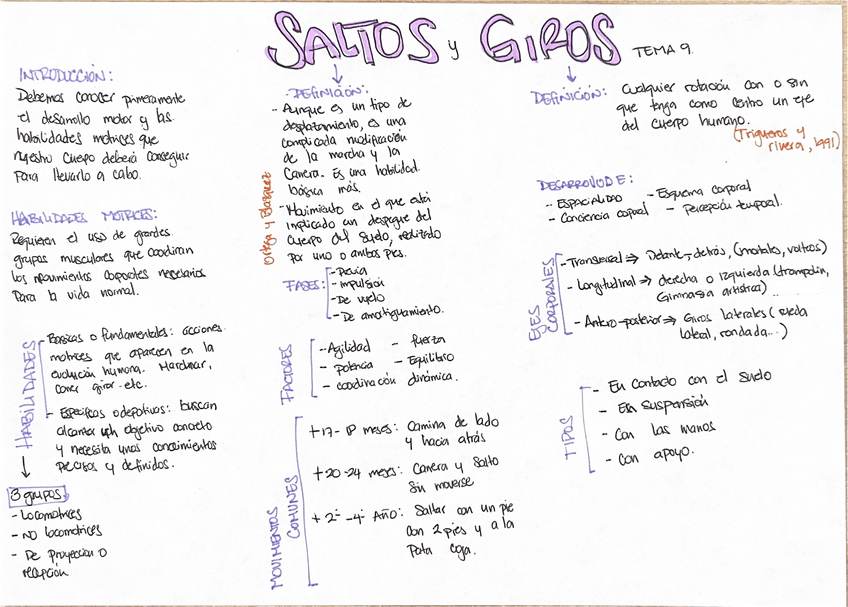 SALTOS y GIROS TEMA 9.
INTRODUCCIÓN:
Debemos conocer primeramente
el desarrollo motor y las
habilidades motrices que
nuestro cuerpo deberá conseguir
para llevarlo a cabo.
HABILIDADES MOTRICES:
Requieren el uso de grandes
grupos musculares que coordinan
los movimientos corporales necesarios
para la vida normal.
HABILIDADES
- Básicas o fundamentales: acciones
motrices que aparecen en la
evolución humana. Marchar,
correr, girar.. etc.
- Específicas o deportivas: buscan
alcanzar un objetivo concreto
y necesita unos conocimientos
precisos y definidos.
3 grupos
- Locomotrices
- NO locomotrices
- De proyección o
recepción
- DEFINICIÓN:
- Aunque es un tipo de
desplazamiento, es una
complicada modificación
de la marcha y la
carrera. Es una habilidad
básica más.
Ortega y Blázquez
- Movimiento en el que está
implicado un despegue del
cuerpo del suelo, realizado
por uno o ambos pies.
FASES:
- Previa
- impulsión
- De vuelo
- De amortiguamiento.
FACTORES
- Agilidad - fuerza
- potencia - Equilibrio
- coordinación dinámica.
MOVIMIENTOS COMUNES
+ 17- 18 meses: Camina de lado
y hacia atrás
+ 20-24 meses: Carrera y Salto
sin moverse
+ 2º -4º Año: Saltar con un pie
con 2 pies y a la
pata coja.
DEFINICIÓN: Cualquier rotación con o sin
que tenga como centro un eje
del cuerpo humano.
(Trigueros y
rivera, 1991)
DESARROLLO DE:
- ESPACIALIDAD - Esquema corporal
- Conciencia corporal - Percepción temporal.
EJES CORPORALES
- Transversal ⇒ Delante-detrás, (mortales, volteos)
- Longitudinal ⇒ derecha o Izquierda (trampolín,
Gimnasia artística)..
- Antero-posterior ⇒ Giros laterales (rueda
lateral, rondada...)
TIPOS
- En Contacto con el suelo
- En suspensión
- Con las manos
- Con apoyo.